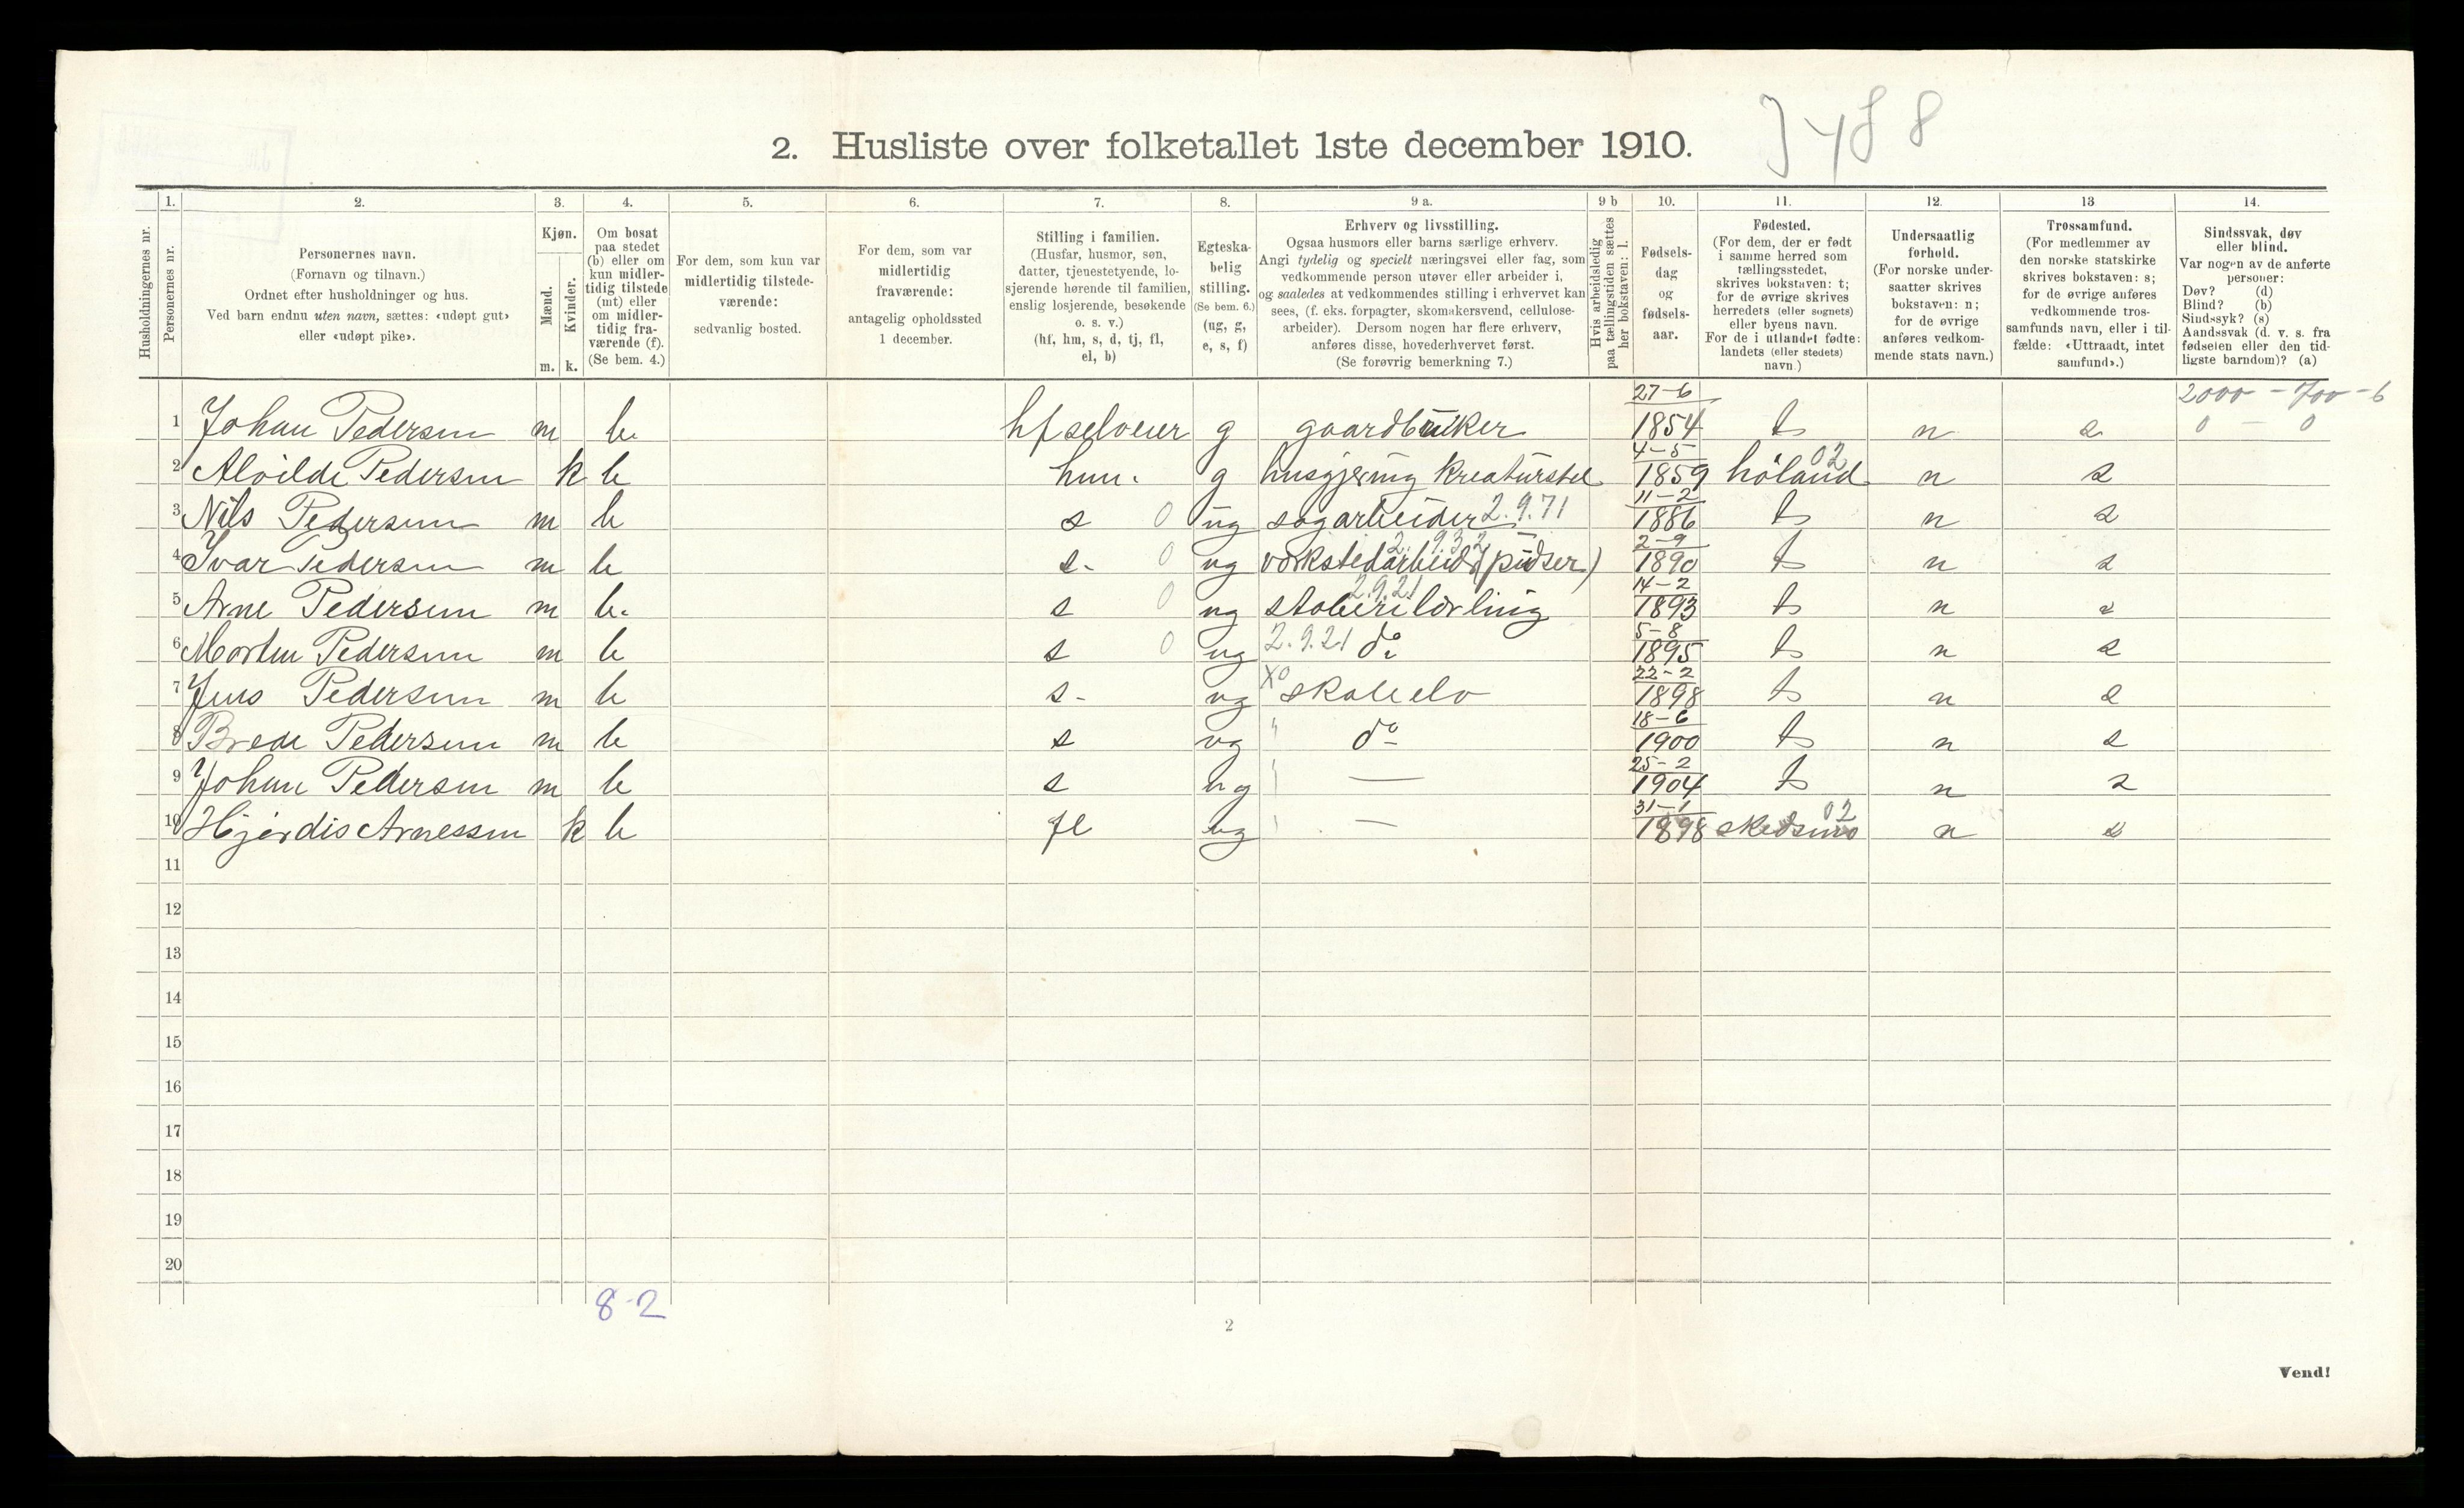 2. Husliste over folketallet 1ste december 1910.
1. 2. 3. 4. 5. 6. 7. 8. 9 a. 9 b 10. 11. 12. 13 14.
Husholdningernes nr.
Personernes nr.
Personernes navn.
(Fornavn og tilnavn.)
Ordnet efter husholdninger og hus.
Ved barn endnu uten navn, sættes: «udøpt gut»
eller «udøpt pike».
Kjøn.
Mænd.
Kvinder.
m. k.
Om bosat
paa stedet
(b) eller om
kun midler-
tidig tilstede
(mt) eller
om midler-
tidig fra-
værende (f).
(Se bem. 4.)
For dem, som kun var
midlertidig tilstede-
værende:
sedvanlig bosted.
For dem, som var
midlertidig
fraværende:
antagelig opholdssted
1 december.
Stilling i familien.
(Husfar, husmor, søn,
datter, tjenestetyende, lo-
sjerende hørende til familien,
enslig losjerende, besøkende
o. s. v.)
(hf, hm, s, d, tj, fl,
el, b)
Egteska-
belig
stilling.
(Se bem. 6.)
(ug, g,
e, s, f)
Erhverv og livsstilling.
Ogsaa husmors eller barns særlige erhverv.
Angi tydelig og specielt næringsvei eller fag, som
vedkommende person utøver eller arbeider i,
og saaledes at vedkommendes stilling i erhvervet kan
sees, (f. eks. forpagter, skomakersvend, cellulose-
arbeider). Dersom nogen har flere erhverv,
anføres disse, hovederhvervet først.
(Se forøvrig bemerkning 7.)
Hvis arbeidsledig
paa tællingstiden sættes
her bokstaven: l.
Fødsels-
dag
og
fødsels-
aar.
Fødested.
(For dem, der er født
i samme herred som
tællingsstedet,
skrives bokstaven: t;
for de øvrige skrives
herredets (eller sognets)
eller byens navn.
For de i utlandet fødte:
landets (eller stedets)
navn.)
Undersaatlig
forhold.
(For norske under-
saatter skrives
bokstaven: n;
for de øvrige
anføres vedkom-
mende stats navn.)
Trossamfund.
(For medlemmer av
den norske statskirke
skrives bokstaven: s;
for de øvrige anføres
vedkommende tros-
samfunds navn, eller i til-
fælde: «Uttraadt, intet
samfund».)
Sindssvak, døv
eller blind.
Var nogen av de anførte
personer:
Døv? (d)
Blind? (b)
Sindssyk? (s)
Aandssvak (d. v. s. fra
fødselen eller den tid-
ligste barndom)? (a)
27-6 2000 - 700 - 6
1 Johan Pedersen m b. hf selveier g gaardbruker 1854 t n s 0 - 0
4-5 02
2 Alvilde Pedersen k b hm. g husgjerning kreaturstel 1859 høland n s
11-2
3 Nils Pedersen m b s 0 ug sagarbeider 2.9.71 1886 t n s
2-9
4 Ivar Pedersen m b s- 0 ug verkstedarbeid (pudser) 1890 t n s
2.9.21 14-2
5 Arne Pedersen m b. s 0 ug støberilærling 1893 t n s
5-8
6 Morten Pedersen m b s 0 ug 2.9.21 do 1895 t n s
22-2
7 Jens Pedersen m b s- ug X0 skoleelv 1898 t n s
18-6
8 Brede Pedersen m b s ug " do 1900 t n s
25-2
9 Johan Pedersen m b s ug — 1904 t n s
31-1 02
10 Hjørdis Arnessen k b fl ug — 1898 skedsmo n s
11
12
13
14
15
16
17
18
19
20
8-2
2
Vend!